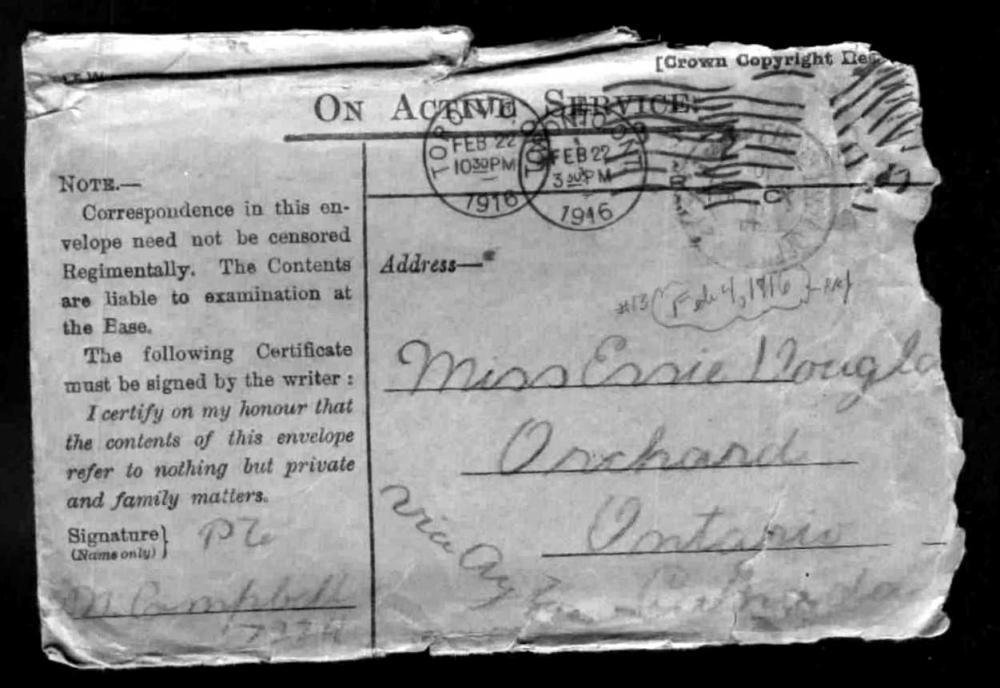 [Crown Copyright
ON ACTIVE SERVICE.
TORONTO
FEB 22
10 30 PM
1916
TORONTO ONT
FEB 22
3 30 PM
1916
NOTE.—
Correspondence in this en-
velope need not be censored
Regimentally. The Contents
are liable to examination at
the Base.
The following Certificate
must be signed by the writer :
I certify on my honour that
the contents of this envelope
refer to nothing but private
and family matters.
Signature}
(Name only)
Pte
M. Campbell
Address—
#13 Feb 4, 1916
Miss Essie Dougla
Orchard
Ontario
Canada
via